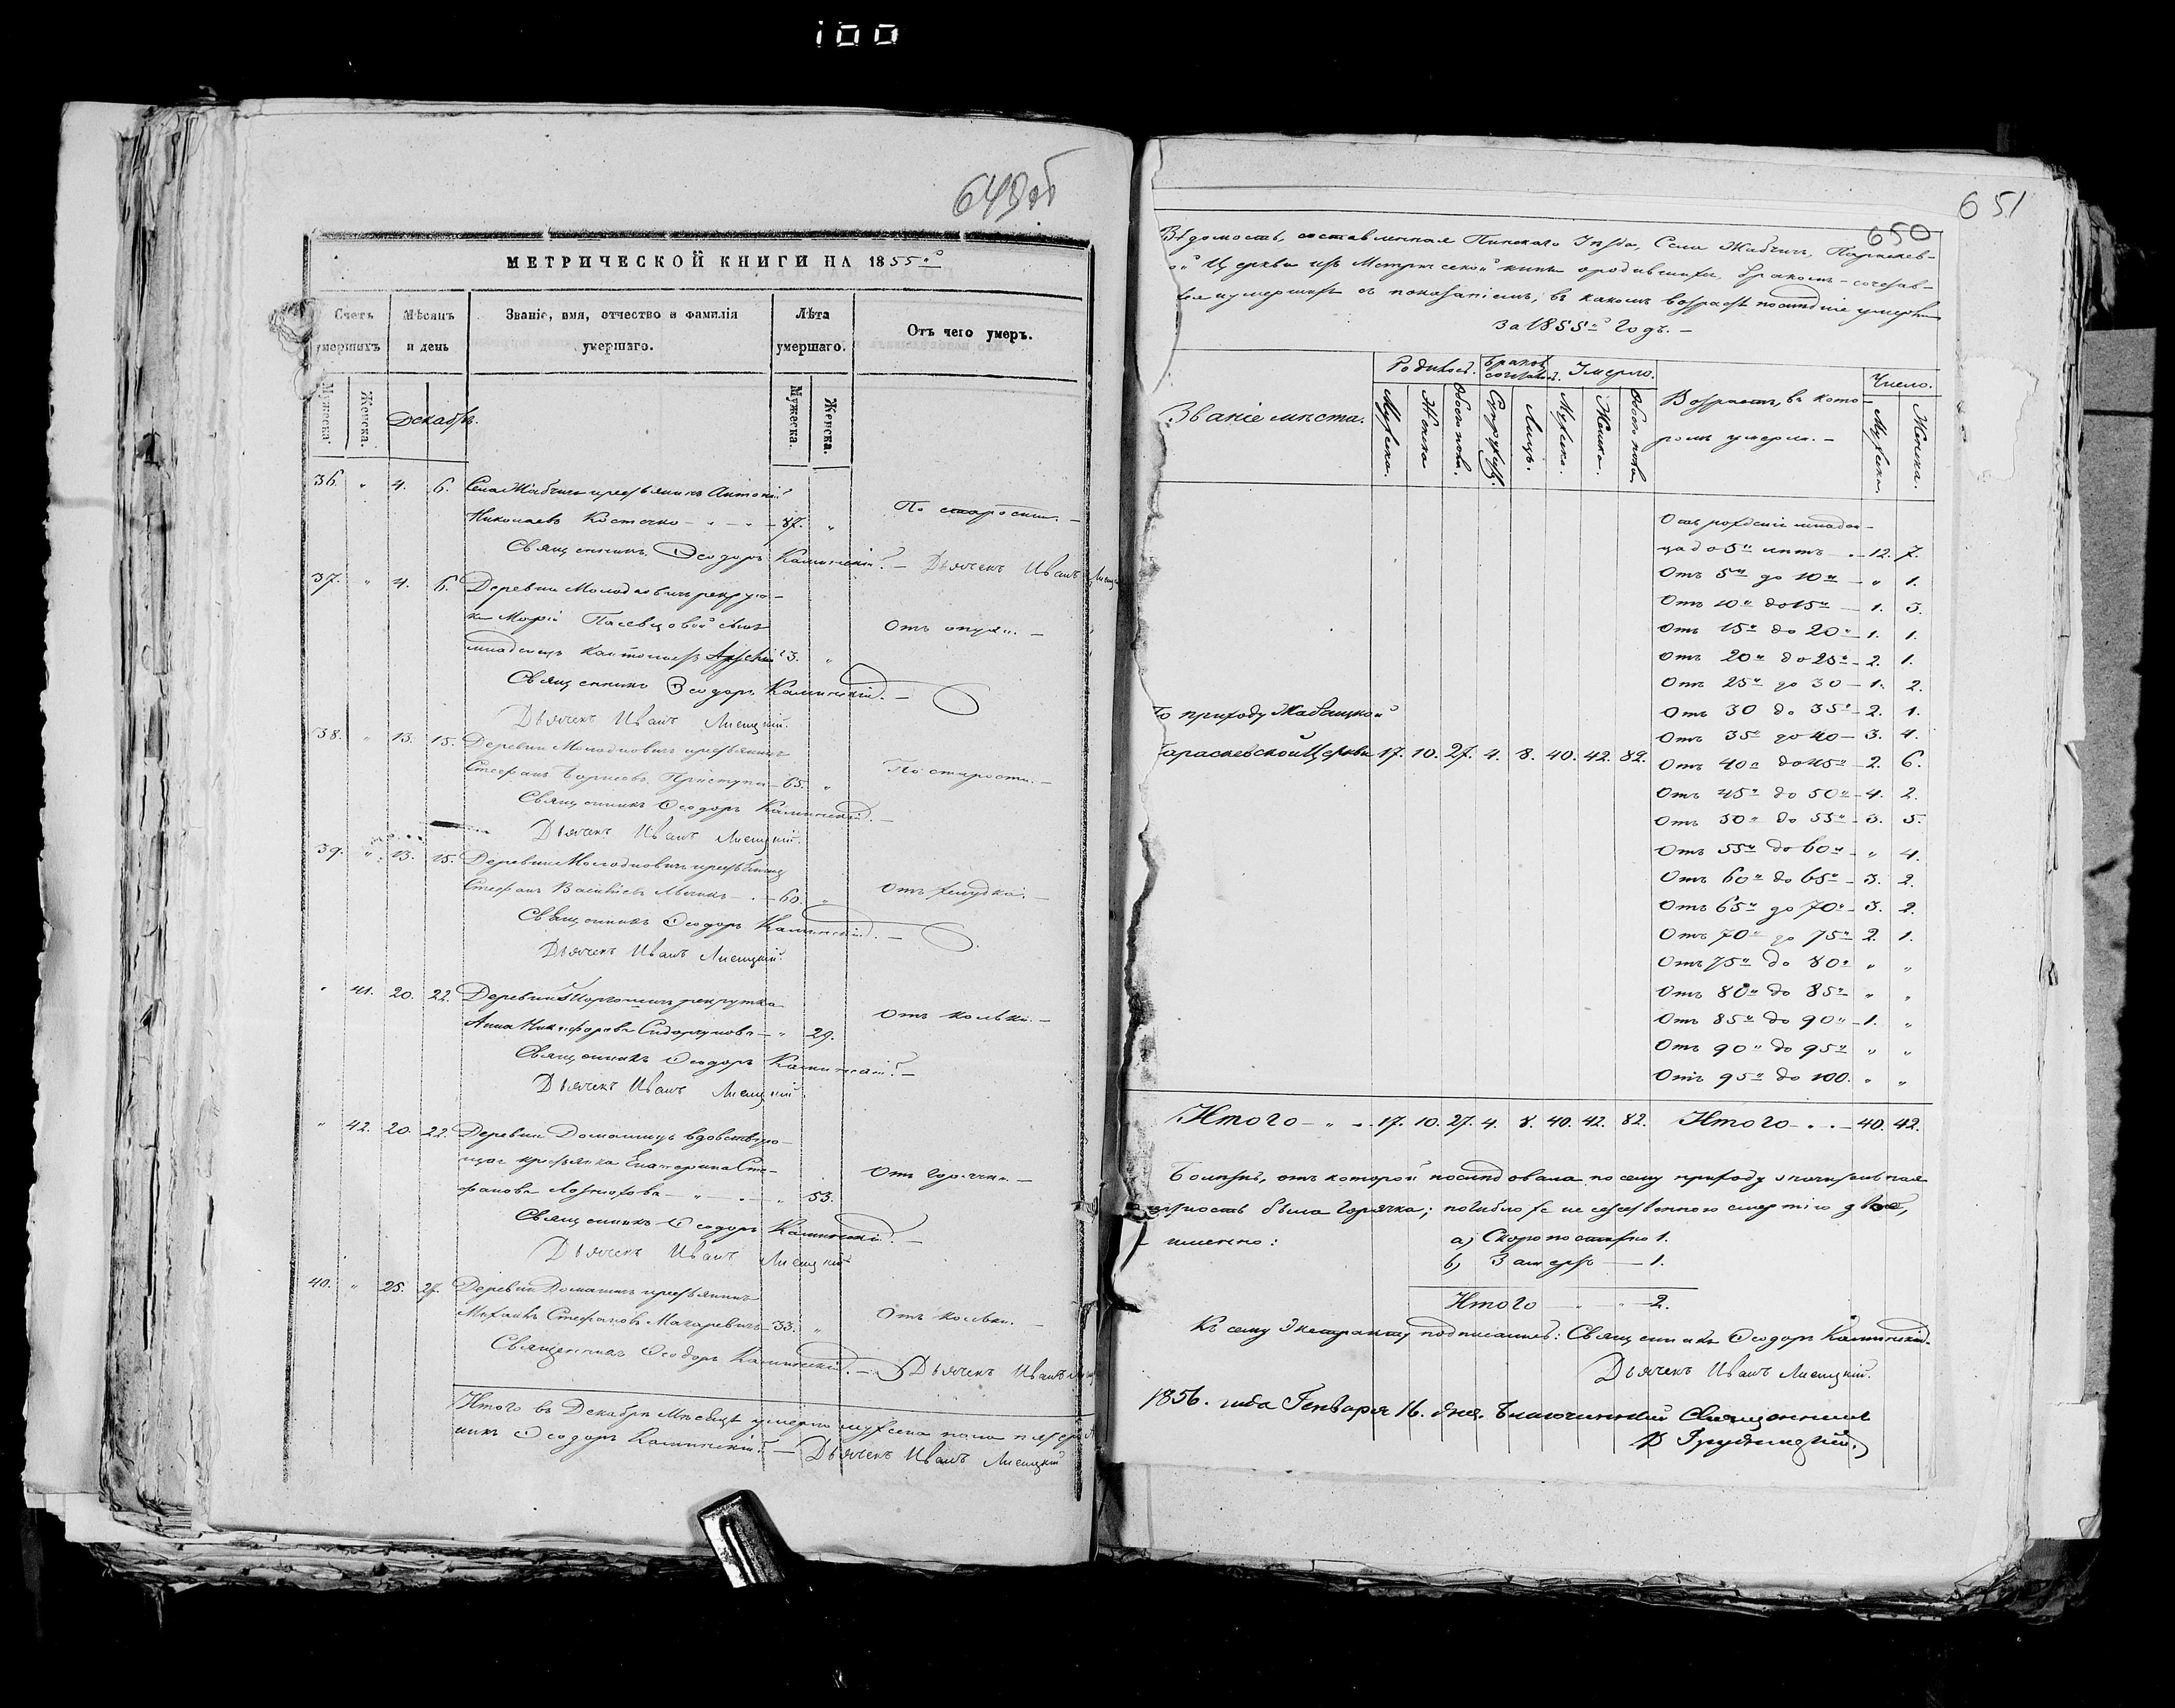 100
649об
МЕТРИЧЕСКОЙ КНИГИ НА 1855й
Счетъ умершихъ
Мѣсяцъ и день
Званіе, имя, отчество и фамилія умершаго.
Лѣта умершаго.
Отъ чего умеръ.
Мужеска.
Женска.
Декабрь.
Мужеска.
Женска.
36. " 4. 6. Села Жабчичъ крестьянинъ Антоній
Николаевъ Костючко 87. " По старости.
Священникъ Ѳеодоръ Калинскій. Дьячекъ Иванъ
37. " 4. 6. Деревни Молодковичъ рекрут-
ки Маріи сынъ Отъ опухи.
младенецъ 3. "
Священникъ Ѳеодоръ Калинскій.
Дьячекъ Иванъ Лисицкій.
38. " 13. 15. Деревни Молодковичъ крестьянинъ
Стефанъ Борисовъ Приступа 65. " По старости.
Священникъ Ѳеодоръ Калинскій.
Дьячекъ Иванъ Лисицкій.
39. " 13. 15. Деревни Молодковичъ крестьянинъ
Стефанъ Васильевъ 60. " Отъ желудка.
Священникъ Ѳеодоръ Калинскій.
Дьячекъ Иванъ Лисицкій.
" 41. 20. 22. Деревни рекрутка
Анна Никифорова Сидорукова " 29. Отъ кольки.
Священникъ Ѳеодоръ Калинскій.
Дьячекъ Иванъ Лисицкій.
" 42. 20. 22. Деревни Домашицъ вдовствую-
щая крестьянка Екатерина Сте-
фанова " 53. Отъ горячки.
Священникъ Ѳеодоръ Калинскій.
Дьячекъ Иванъ Лисицкій
40. " 25. 27. Деревни Домашицъ крестьянинъ
Михаилъ Стефановъ Макаревичъ 33. " Отъ кольки.
Священникъ Ѳеодоръ Калинскій. Дьячекъ Иванъ
Итого въ Декабрѣ Мѣсяцѣ умерло мужеска пола пять
никъ Ѳеодоръ Калинскій. Дьячекъ Иванъ Лисицкій
651
650
Вѣдомость, составленная Пинскаго Уѣзда, Села Жабчичъ, Параскев-
ой Церкви изъ Метрической книги о родившихся, бракомъ-сочетав-
шихся и умершихъ съ показаніемъ, въ какомъ возрастѣ послѣдніе умерли
за 1855й годъ.
Званіе мѣста.
Родилось.
Бракомъ сочеталось.
Умерло.
Возрастъ, въ кото-
ромъ умерли.
Число.
Мужеска.
Женска
Обоего пола.
Супружествъ.
Лицъ.
Мужеска.
Женска.
Обоего пола
Мужеска.
Женска.
По приходу Жабчицкой
Параскевской Церкви 17. 10. 27. 4. 8. 40. 42. 82.
Отъ рожденія младен-
ца до 5и лѣтъ 12. 7.
Отъ 5и до 10и " 1.
Отъ 10и до 15и 1. 3.
Отъ 15и до 20и 1. 1.
Отъ 20и до 25и 2. 1.
Отъ 25и до 30 1. 2.
Отъ 30 до 35и 2. 1.
Отъ 35и до 40 3. 4.
Отъ 40а до 45и 2. 6.
Отъ 45и до 50и 4. 2.
Отъ 50и до 55и 3. 5.
Отъ 55и до 60и " 4.
Отъ 60и до 65и 3. 2.
Отъ 65и до 70и 3. 2.
Отъ 70и до 75и 2. 1.
Отъ 75и до 80и " "
Отъ 80и до 85и " "
Отъ 85и до 90и 1. "
Отъ 90и до 95и " "
Отъ 95и до 100. " "
Итого 17. 10. 27. 4. 8. 40. 42. 82. Итого 40. 42.
Болѣзнь, отъ которой послѣдовала по сему приходу значительная
смертность была горячка; погибло же не естественною смертію двое,
именно: а) Скоропостижно 1.
б) 1.
Итого 2.
Къ сему Экстракту подписались: Священникъ Ѳеодоръ Калинскій.
Дьячекъ Иванъ Лисицкій.
1856. года Генваря 16. дня. Благочинный Священникъ
Грудницкій.